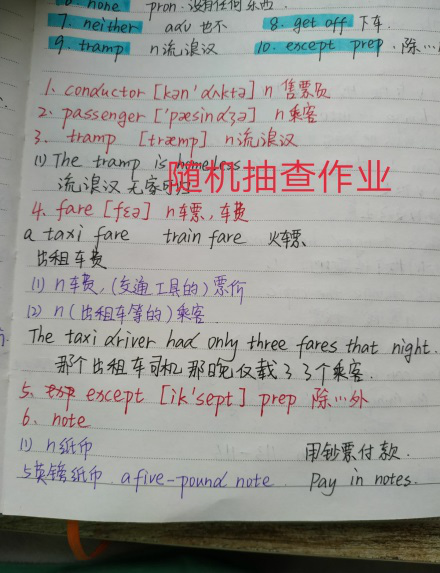 6. none pron. 没有任何东西
7. neither adv 也不 8. get off 下车
9. tramp n 流浪汉 10. except prep. 除…
1. conductor [kən'dʌktə] n 售票员
2. passenger ['pæsindʒə] n 乘客
3. tramp [træmp] n 流浪汉
(1) The tramp is homeless.
流浪汉 无家可归
随机抽查作业
4. fare [fɛə] n 车票, 车费
a taxi fare train fare 火车票
出租车费
(1) n 车费, (交通工具的) 票价
(2) n (出租车等的) 乘客
The taxi driver had only three fares that night.
那个出租车司机 那晚仅载了3个乘客.
5. except [ik'sept] prep 除…外
6. note
(1) n 纸币 用钞票付款.
5英镑纸币 a five-pound note Pay in notes.